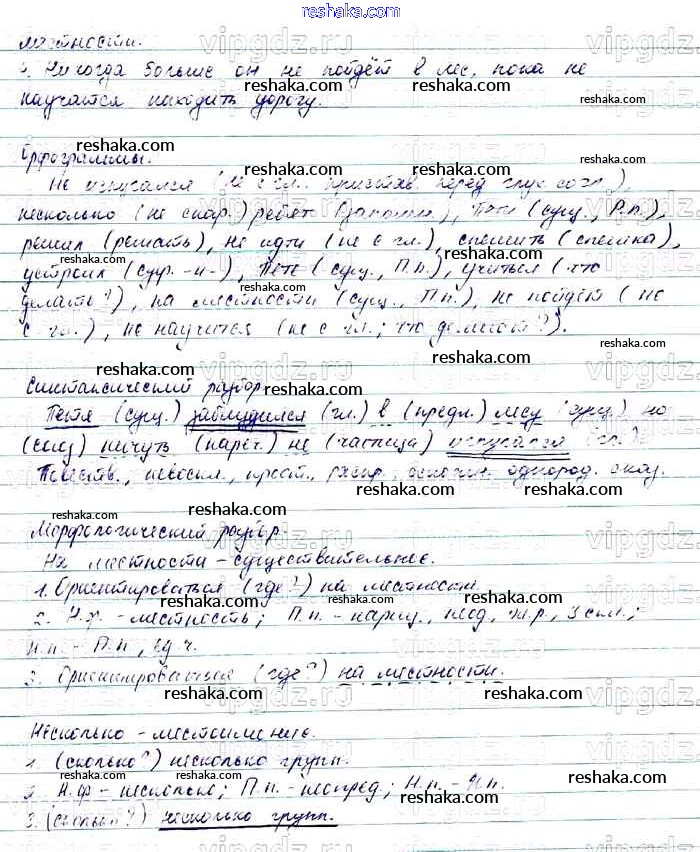 reshaka.com
местности.
4. Никогда больше он не пойдёт в лес, пока не
научится находить дорогу.
Орфограммы.
Не испугался (не с гл., приставк. перед глух. согл.),
несколько (не снар.) ребят (запомни), Пети (сущ., Р.п.),
решил (решать), не идти (не с гл.), спешить (спешка),
устроил (суф. -и-), Пете (сущ., П.п.), учиться (что
делать?), на местности (сущ., П.п.), не пойдёт (не
с гл.), не научится (не с гл.; что делают?).
Синтаксический разбор
Петя (сущ.) заблудился (гл.) в (предл.) лесу (сущ.) но
(союз) ничуть (нареч.) не (частица) испугался (гл.)
Повеств., невоскл., прост., распр., осложн. однород. сказ.
Морфологический разбор
На местности - существительное.
1. Ориентироваться (где?) на местности
2. Н.ф. - местность; П.п. - нариц., неод., ж.р., 3 скл.;
Н.п. - П.п., ед.ч.
3. Ориентироваться (где?) на местности.
Несколько - местоимение.
1. (сколько?) несколько групп.
2. Н.ф - несколько; П.п. - неопред; Н.п. - И.п.
3. (сколько?) несколько групп.